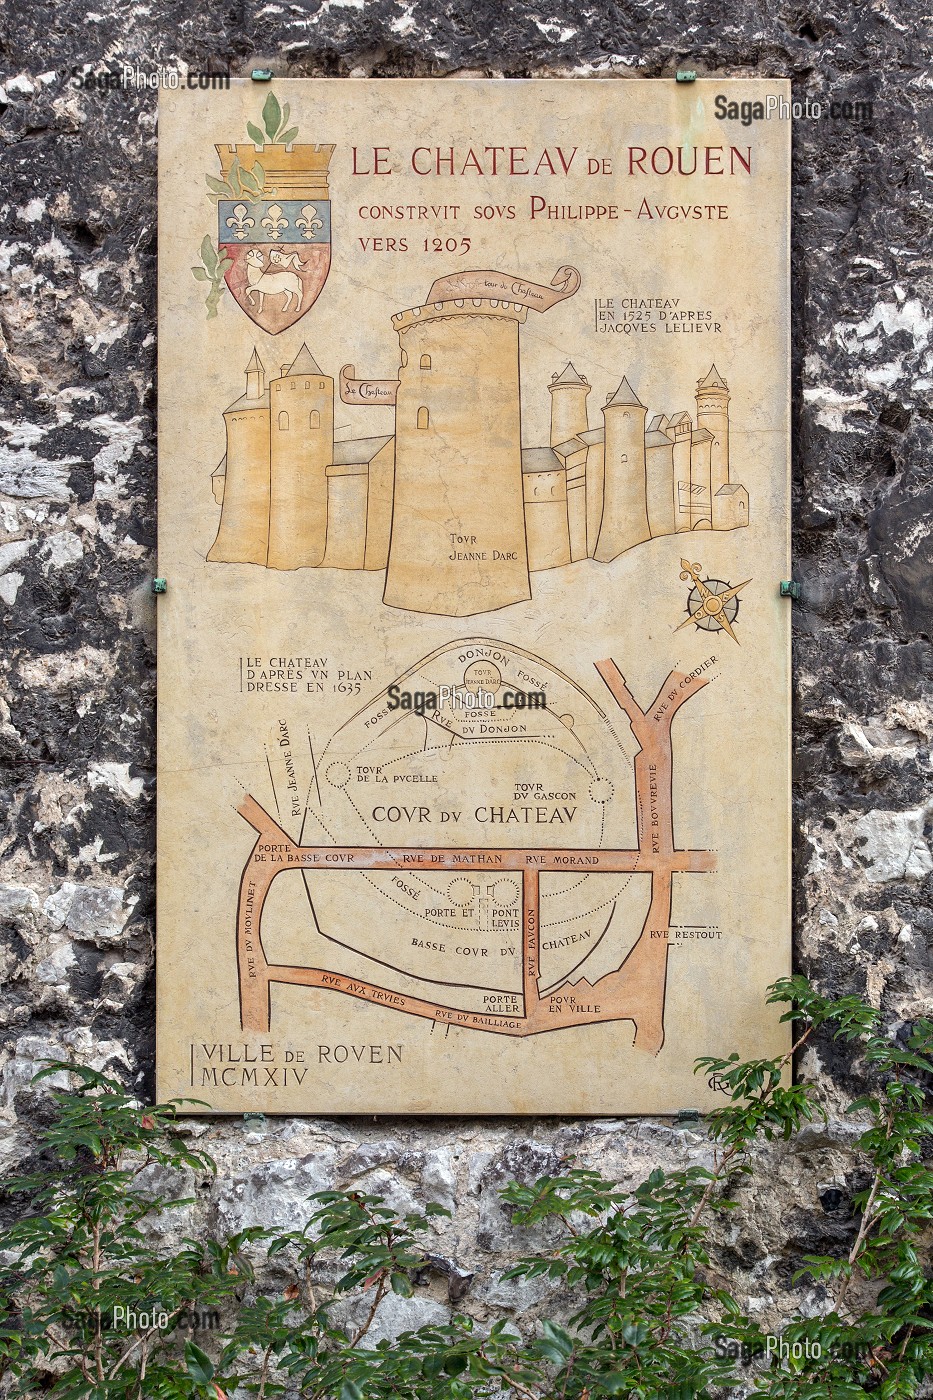 SagaPhoto.com
SagaPhoto.com
LE CHATEAV DE ROUEN
CONSTRVIT SOVS PHILIPPE-AVGVSTE
VERS 1205
tour du Chasteau
LE CHATEAV
EN 1525 D'APRES
JACQVES LELIEVR
Le Chasteau
TOVR
JEANNE DARC
LE CHATEAV
D'APRÈS VN PLAN
DRESSE EN 1635
DONJON
FOSSÉ
TOVR
JEANNE DARC
SagaPhoto.com
FOSSÉ
FOSSE
RVE
DV DONJON
RVE DV CORDIER
RVE JEANNE DARC
TOVR
DE LA PVCELLE
TOVR
DV GASCON
COVR DV CHATEAV
RVE BOVVREVIE
PORTE
DE LA BASSE COVR
RVE DE MATHAN
RVE MORAND
FOSSÉ
PORTE ET
PONT
LEVIS
RVE DV MOVLINET
RVE FAVCON
BASSE COVR DV
CHATEAV
RVE RESTOUT
RVE AVX TRVIES
PORTE
ALLER
POVR
EN VILLE
RVE DV BAILLIAGE
VILLE DE ROVEN
MCMXIV
SagaPhoto.com
SagaPhoto.com